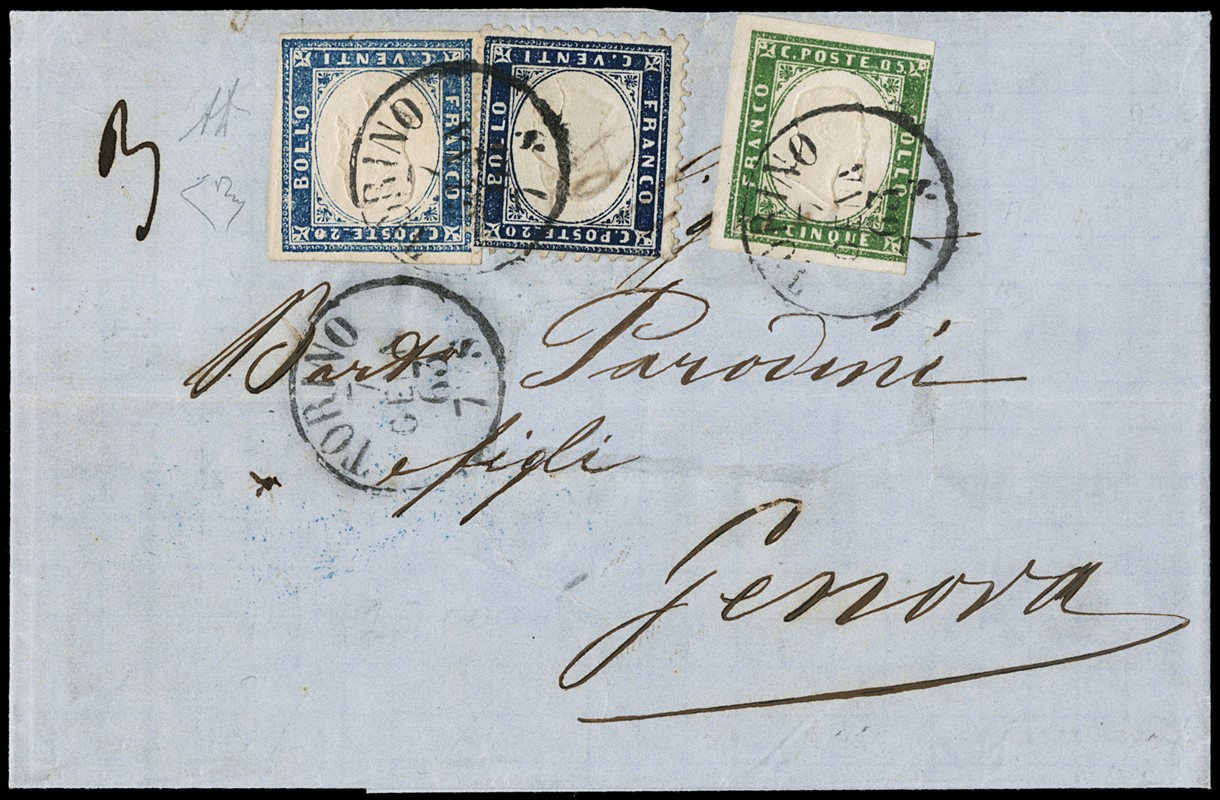 C. VENTI
BOLLO
FRANCO
C. POSTE 20
C. VENTI
BOLLO
FRANCO
C. POSTE 20
C. POSTE 05
FRANCO
BOLLO
CINQUE
TORINO
TORINO
3
TORINO
7
GEN
63
7 S
Barto Parodini
e figli
Genova